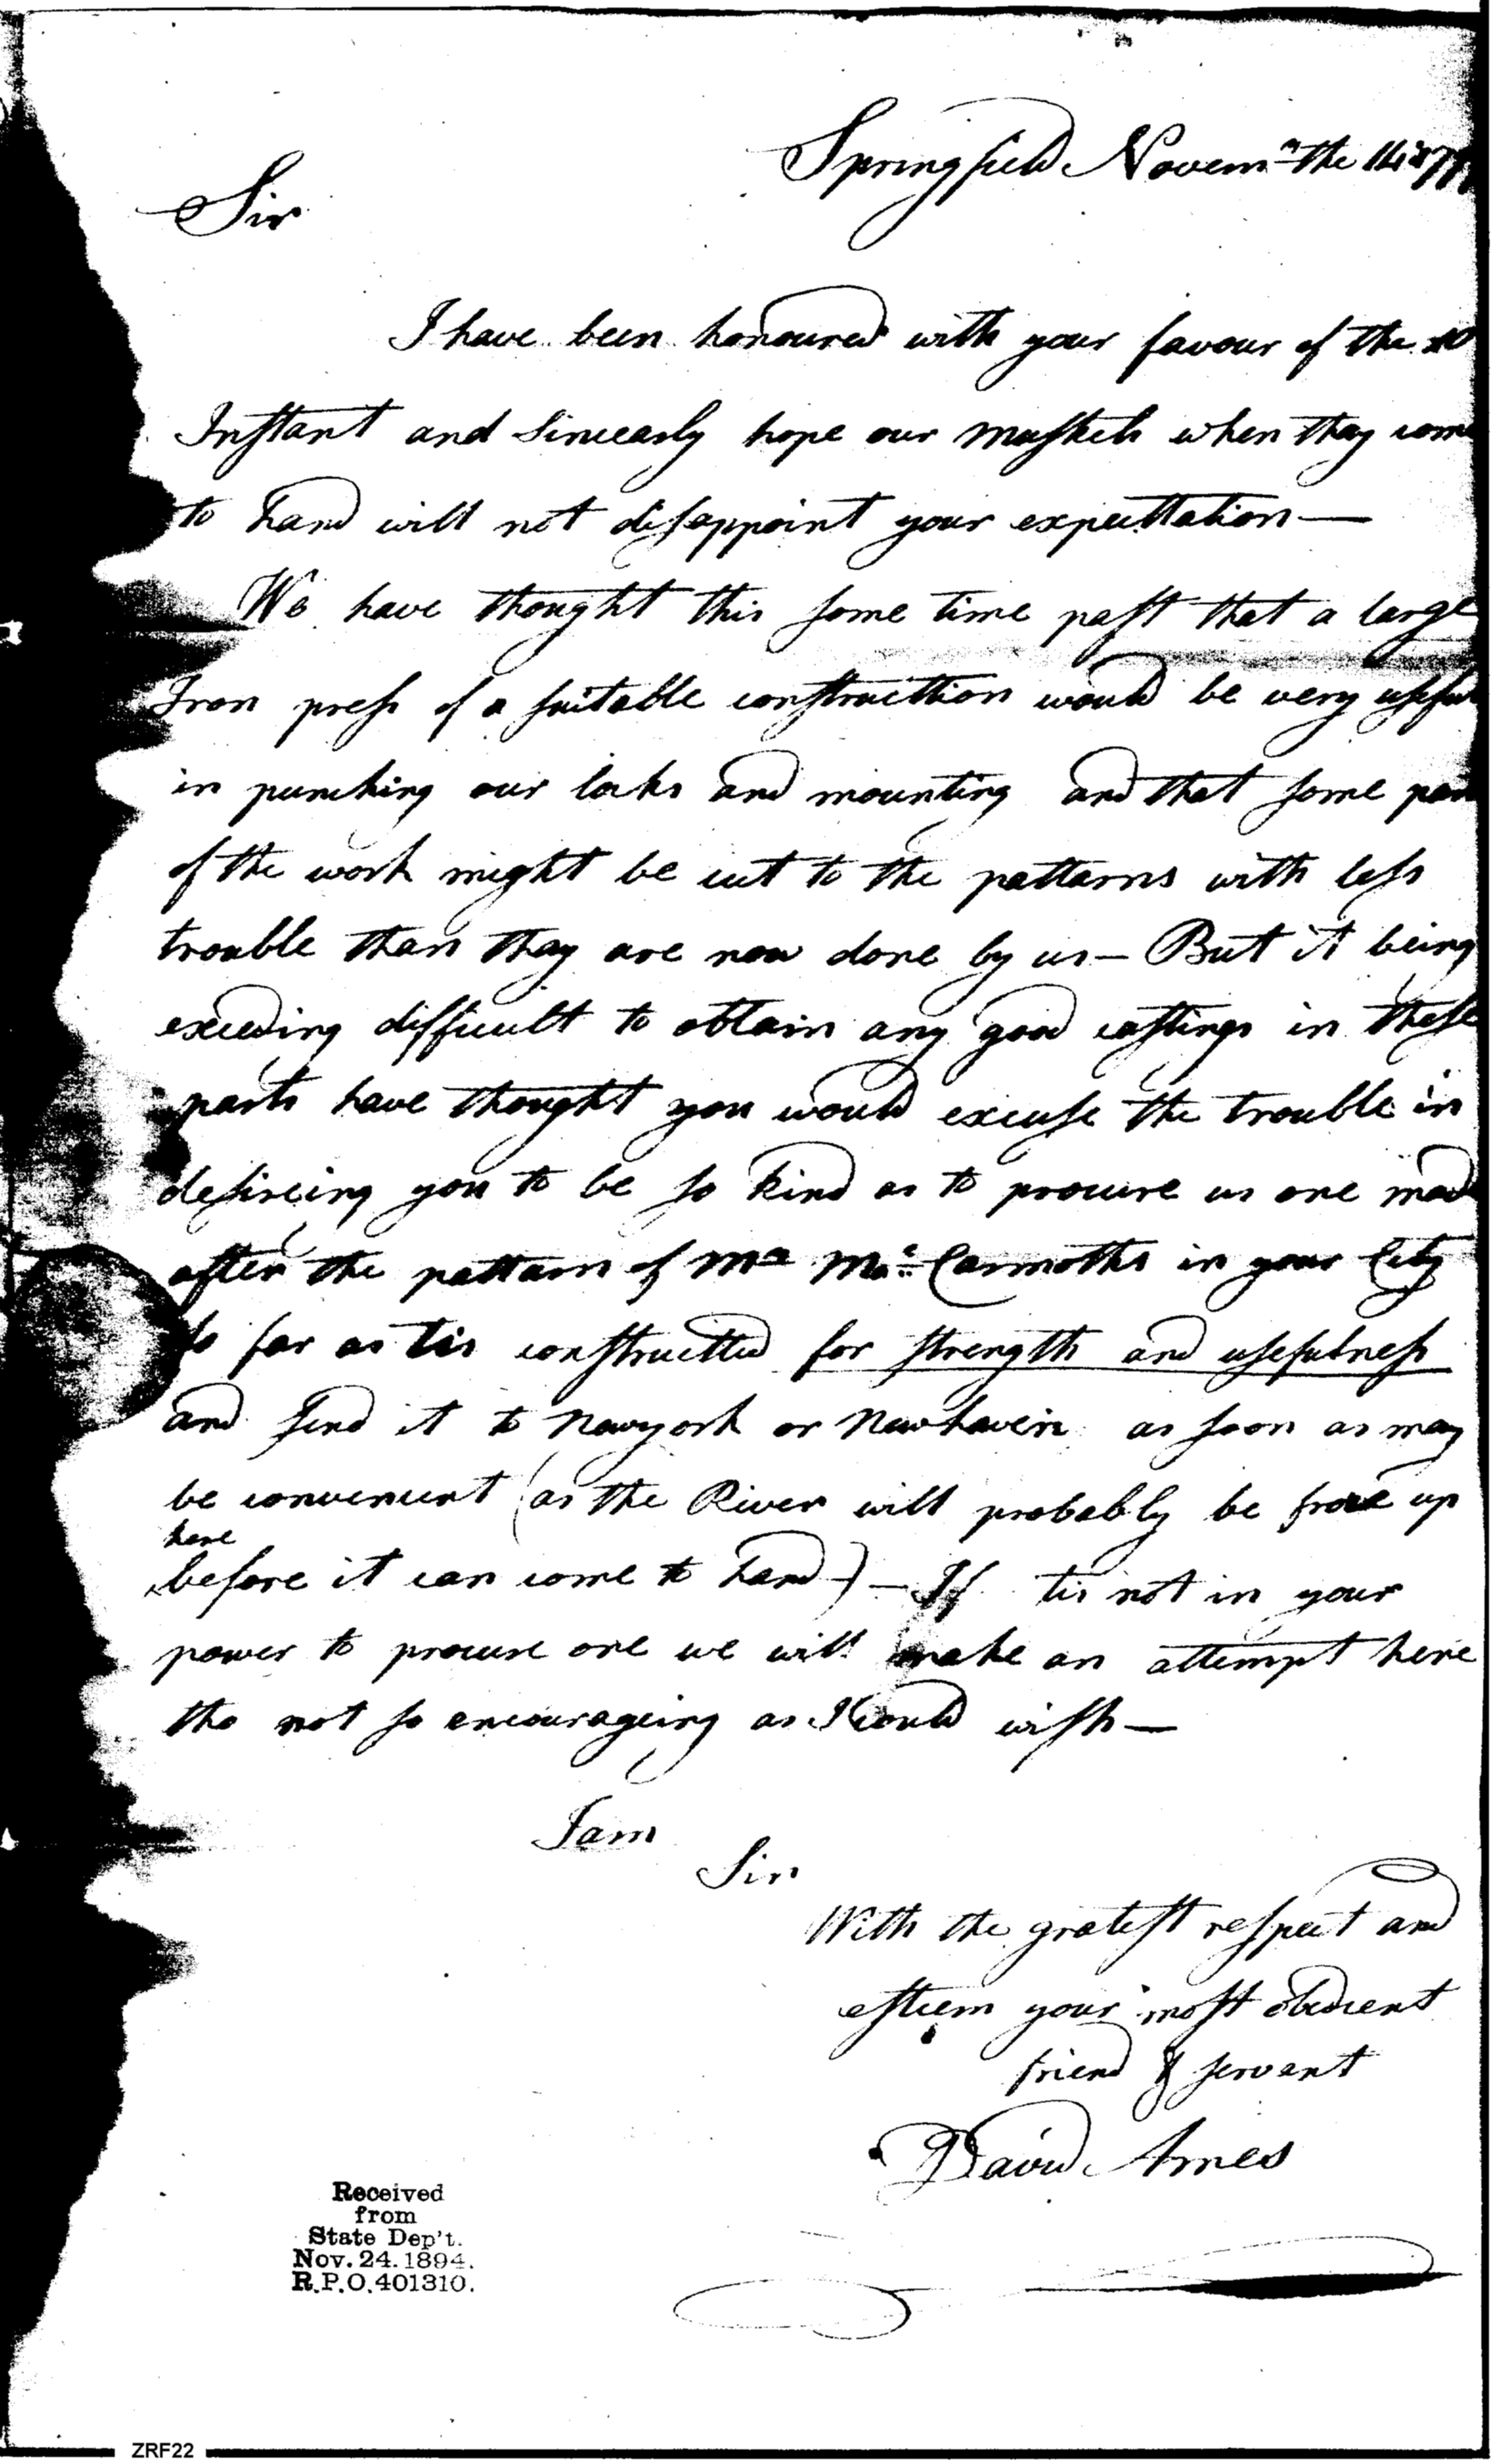 Springfield Novemr the 14
Sir
I have been honoured with your favour of the
Instant and Sincearly hope our muskets when thay come
to hand will not disappoint your expecttation—
We have thought this some time past that a large
Iron press of a suitable construcktion would be very useful
in punching our locks and mounting and that some part
of the work might be cut to the pattarns with less
trouble than thay are now done by us— But it being
exceeding difficult to obtain any good castings in these
parts have thought you would excuse the trouble in
desireing you to be so kind as to procure us one made
after the pattarn of Mr Mc Carmoths in your City
so far as tis constructted for strength and usefulness
and send it to Newyork or Newhaven as soon as may
be convenient (as the River will probably be froze up
here
before it can come to hand)— If tis not in your
power to procure one we will make an attempt here
tho not so encourageing as I could wish—
I am
Sir
With the gratest respect and
esteem your most obedient
friend & servant
David Ames
Received
from
State Dep't.
Nov. 24. 1894.
R.P.O. 401310.
ZRF22